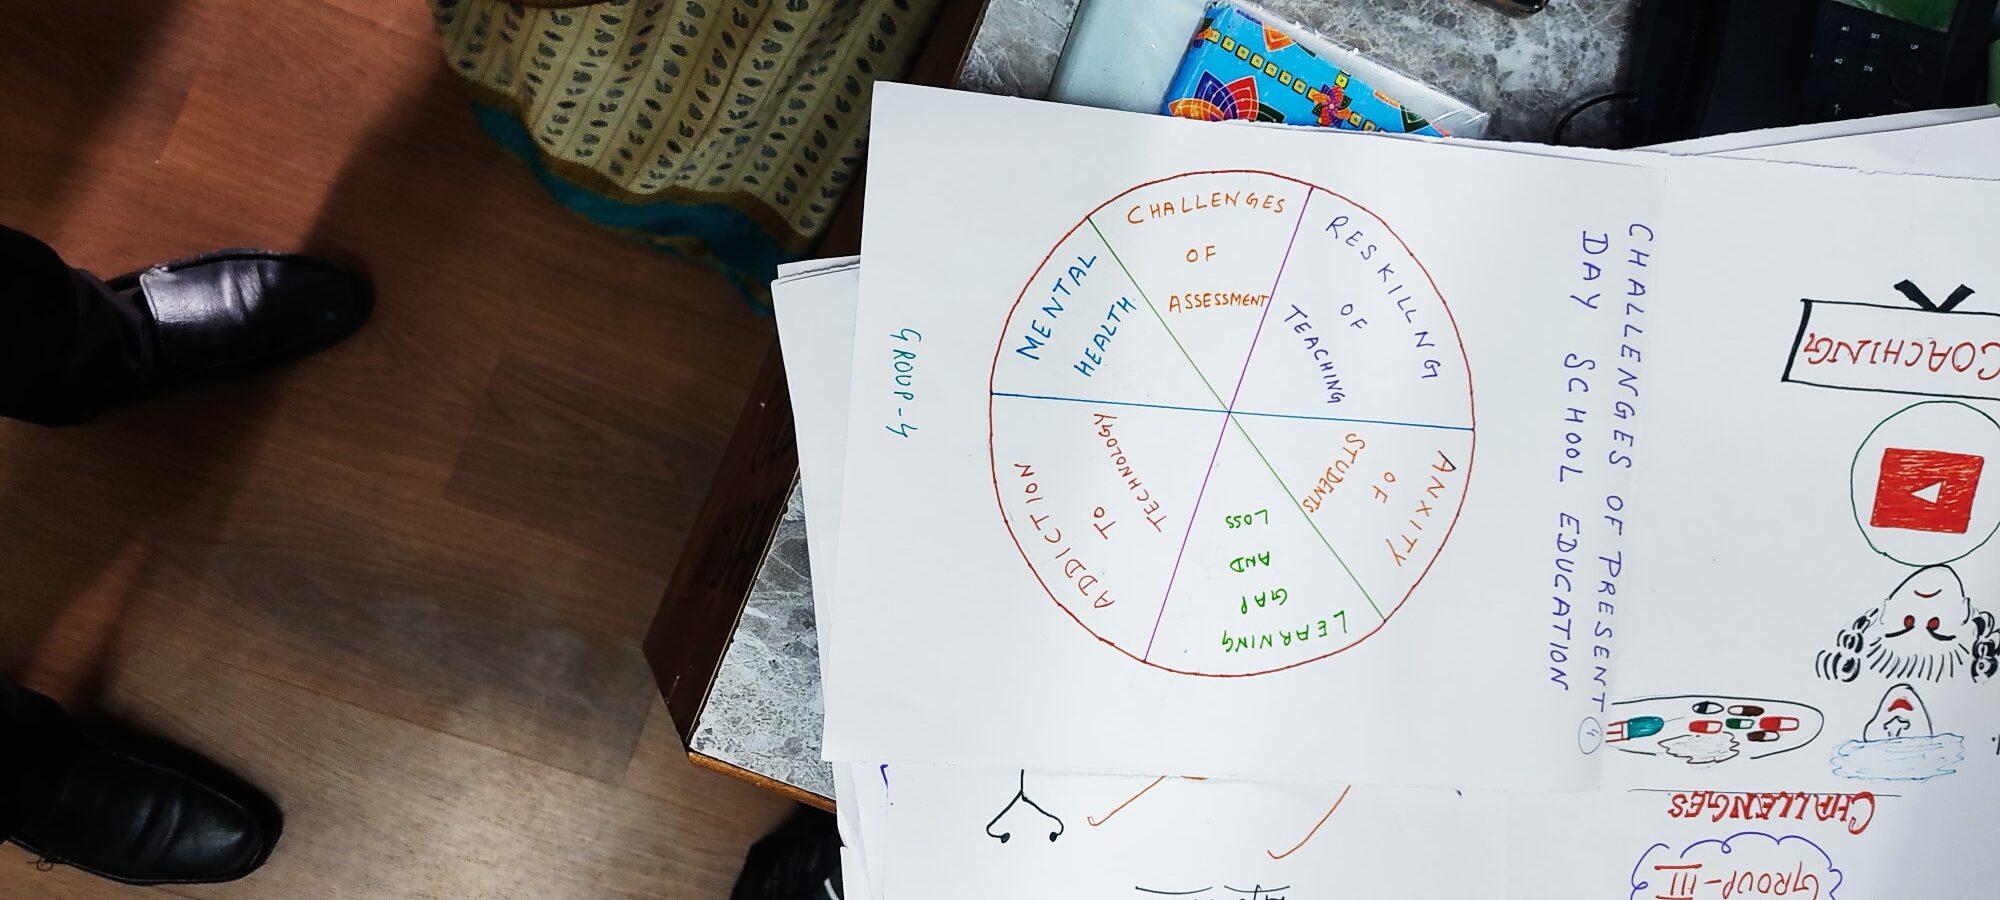 CHALLENGES OF PRESENT
DAY SCHOOL EDUCATION
4
CHALLENGES
OF
ASSESSMENT
RESKILLNG
OF
TEACHING
ANXITY
OF
STUDENTS
LEARNING
GAP
AND
LOSS
ADDICTION
TO
TECHNOLOGY
MENTAL
HEALTH
GROUP-4
GROUP-III
CHALLENGES
COACHING
M1
SET
UP
M2
STR
1